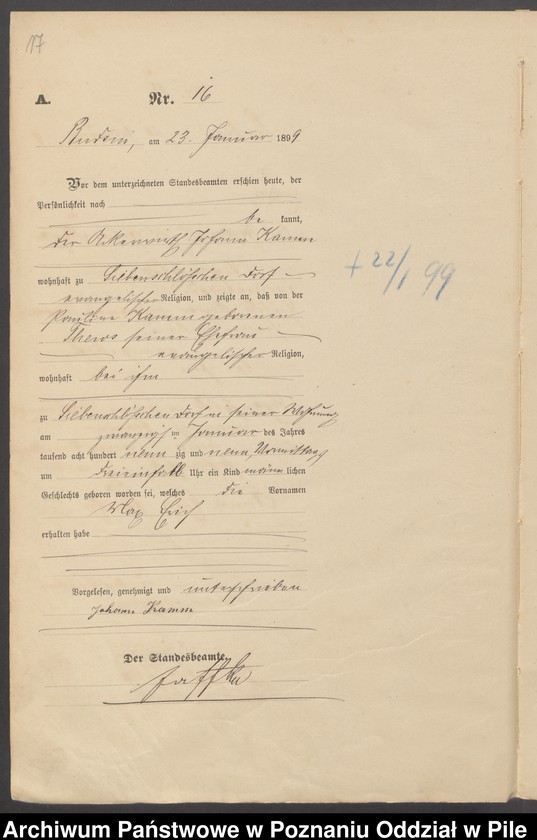 17
A. Nr. 16
Budsin, am 23. Januar 1899
Vor dem unterzeichneten Standesbeamten erschien heute, der
Persönlichkeit nach
be kannt,
der Ackerwirth Johann Kamm
wohnhaft zu Siebenschlößchen Dorf
evangelischer Religion, und zeigte an, daß von der
Pauline Kamm geborenen
Thews seiner Ehefrau
evangelischer Religion,
wohnhaft bei ihm
zu Siebenschlößchen Dorf in seiner Wohnung
am zwanzigsten Januar des Jahres
tausend acht hundert neun zig und neun Vormittags
um dreieinhalb Uhr ein Kind männ lichen
Geschlechts geboren worden sei, welches die Vornamen
Max Erich
erhalten habe
Vorgelesen, genehmigt und unterschrieben
Johann Kamm
Der Standesbeamte.
+ 22/1 99
Archiwum Państwowe w Poznaniu Oddział w Pile